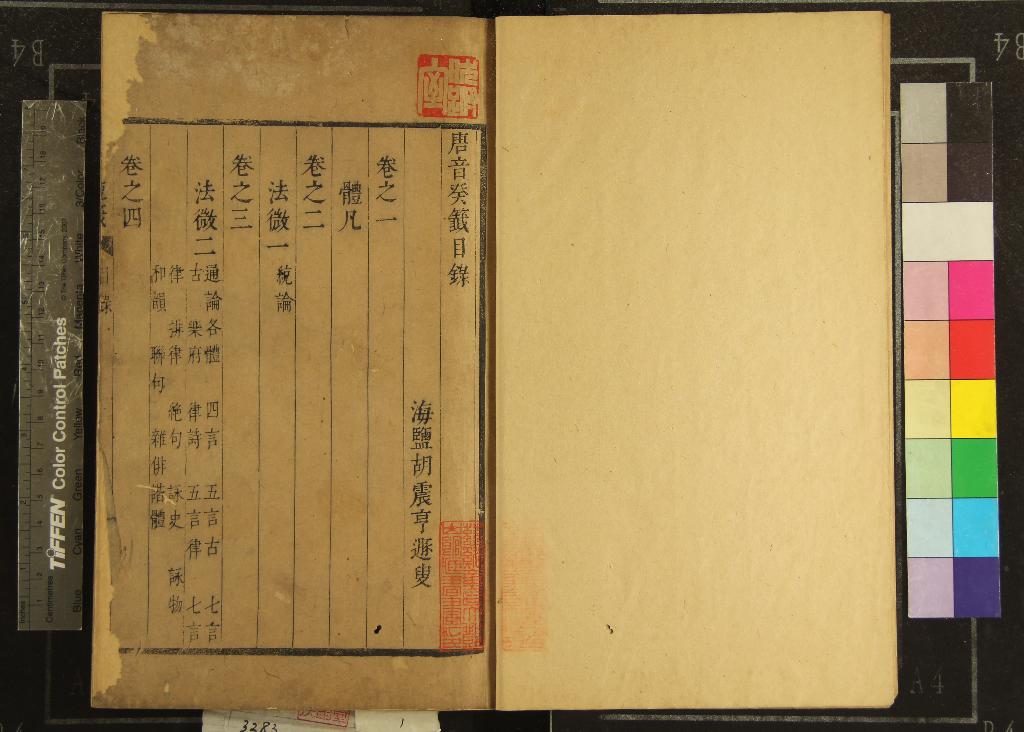 唐音癸籤目錄
海鹽胡震亨遯叟
卷之一
體凡
卷之二
法微一 統論
卷之三
法微二 通論各體 四言 五言古 七言
古 樂府 律詩 五言律 七言
律 排律 絶句 詠史 詠物
和韻 聯句 雜俳諧體
卷之四
TIFFEN Color Control Patches
© The Tiffen Company, 2007
Blue Cyan Green Yellow Red Magenta White 3/Color Black
Inches
Centimetres
B4
B4
A4
3283
1